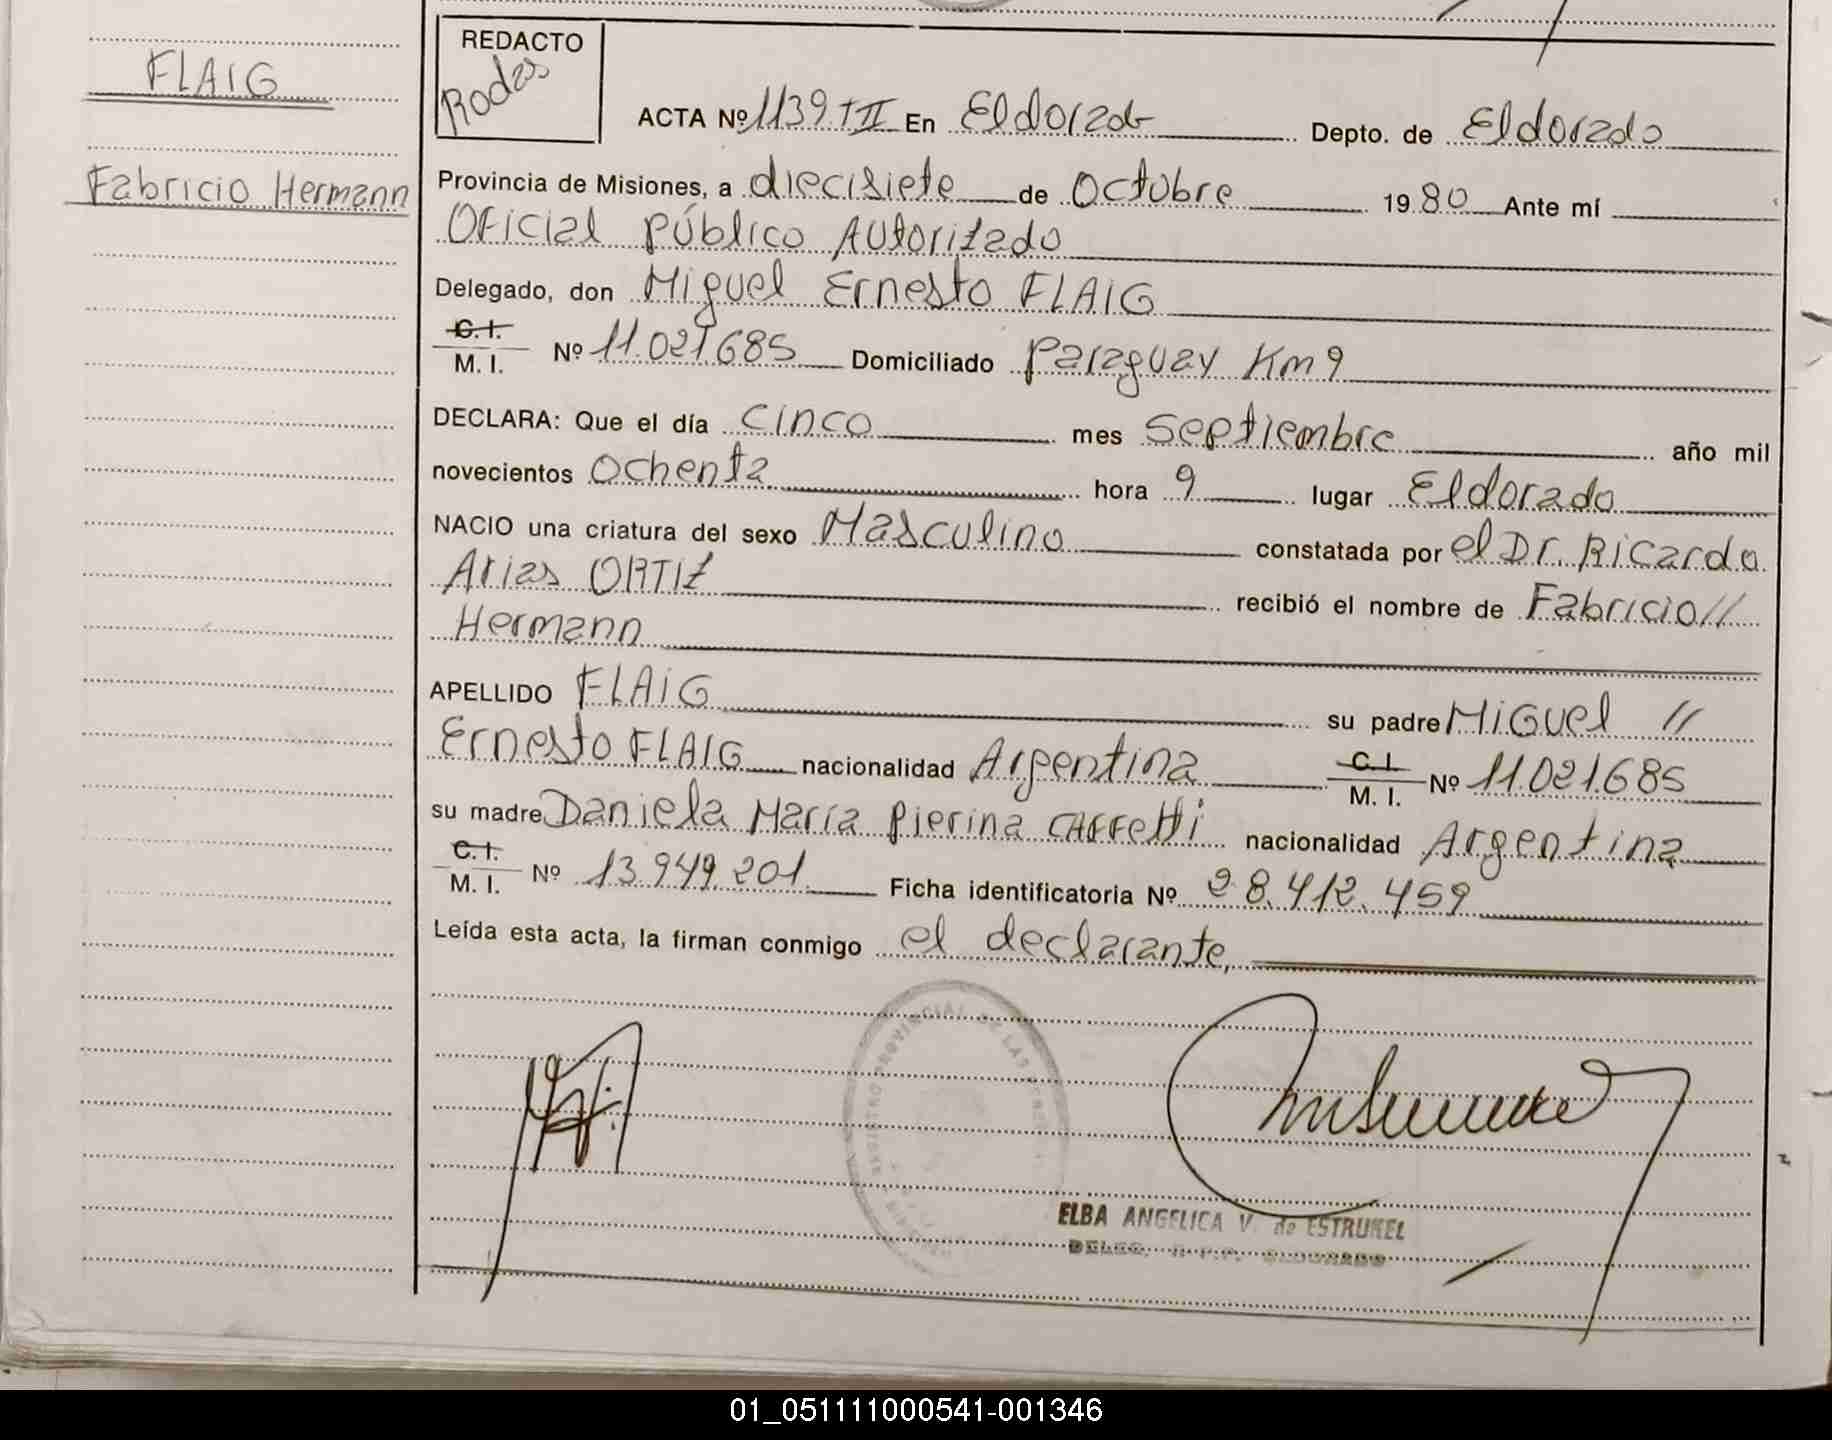 FLAIG
Fabricio Hermann
REDACTO
Rodas
ACTA Nº 1139 TII En Eldorado Depto. de Eldorado
Provincia de Misiones, a diecisiete de Octubre 1980 Ante mí
Oficial Público Autorizado
Delegado, don Miguel Ernesto FLAIG
C.I.
M. I. Nº 11.021685 Domiciliado Paraguay Km 9
DECLARA: Que el día cinco mes Septiembre año mil
novecientos Ochenta hora 9 lugar Eldorado
NACIO una criatura del sexo Masculino constatada por el Dr. Ricardo
Arias ORTIZ recibió el nombre de Fabricio//
Hermann
APELLIDO FLAIG su padre Miguel //
Ernesto FLAIG nacionalidad Argentina C.I. M. I. Nº 11.021.685
su madre Daniela María Pierina CAFFetti nacionalidad Argentina
C.I.
M. I. Nº 13.949.201. Ficha identificatoria Nº 28.412.459
Leída esta acta, la firman conmigo el declarante,
REGISTRO PROVINCIAL DE LAS
ELBA ANGELICA V. de ESTRUKEL
DELEG. R.P.P. ELDORADO
01_051111000541-001346